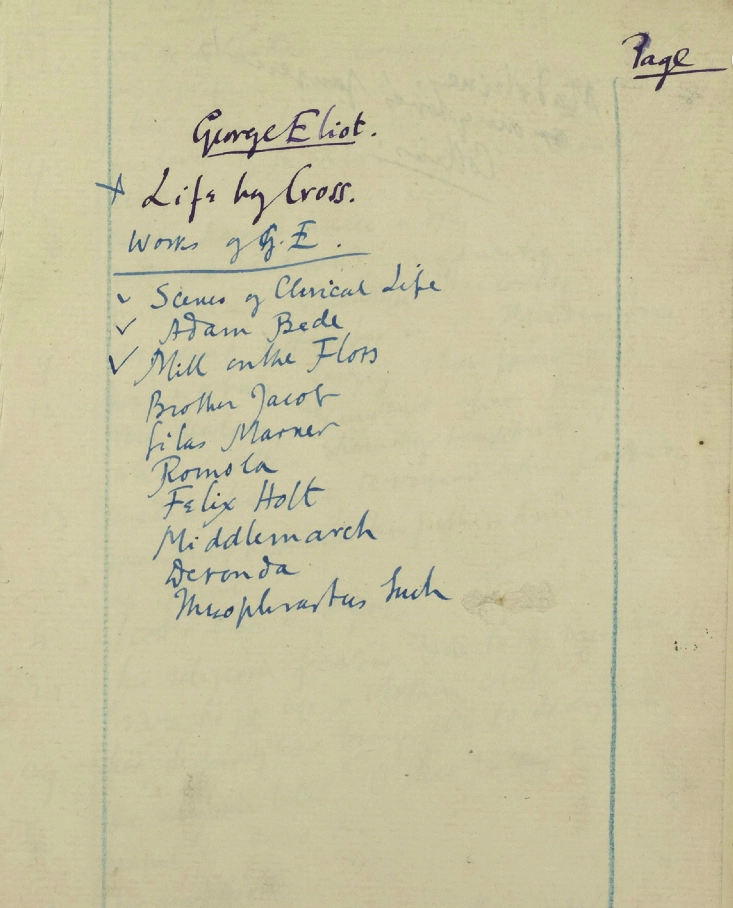 Page
George Eliot.
x Life by Cross.
Works of G. E.
✓ Scenes of Clerical Life
✓ Adam Bede
✓ Mill on the Floss
Brother Jacob
Silas Marner
Romola
Felix Holt
Middlemarch
Deronda
Theophrastus Such